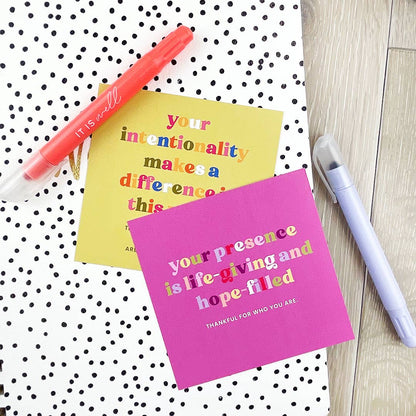 IT IS well
your
intentionality
makes a
difference
this
your presence
is life-giving and
hope-filled
THANKFUL FOR WHO YOU ARE.